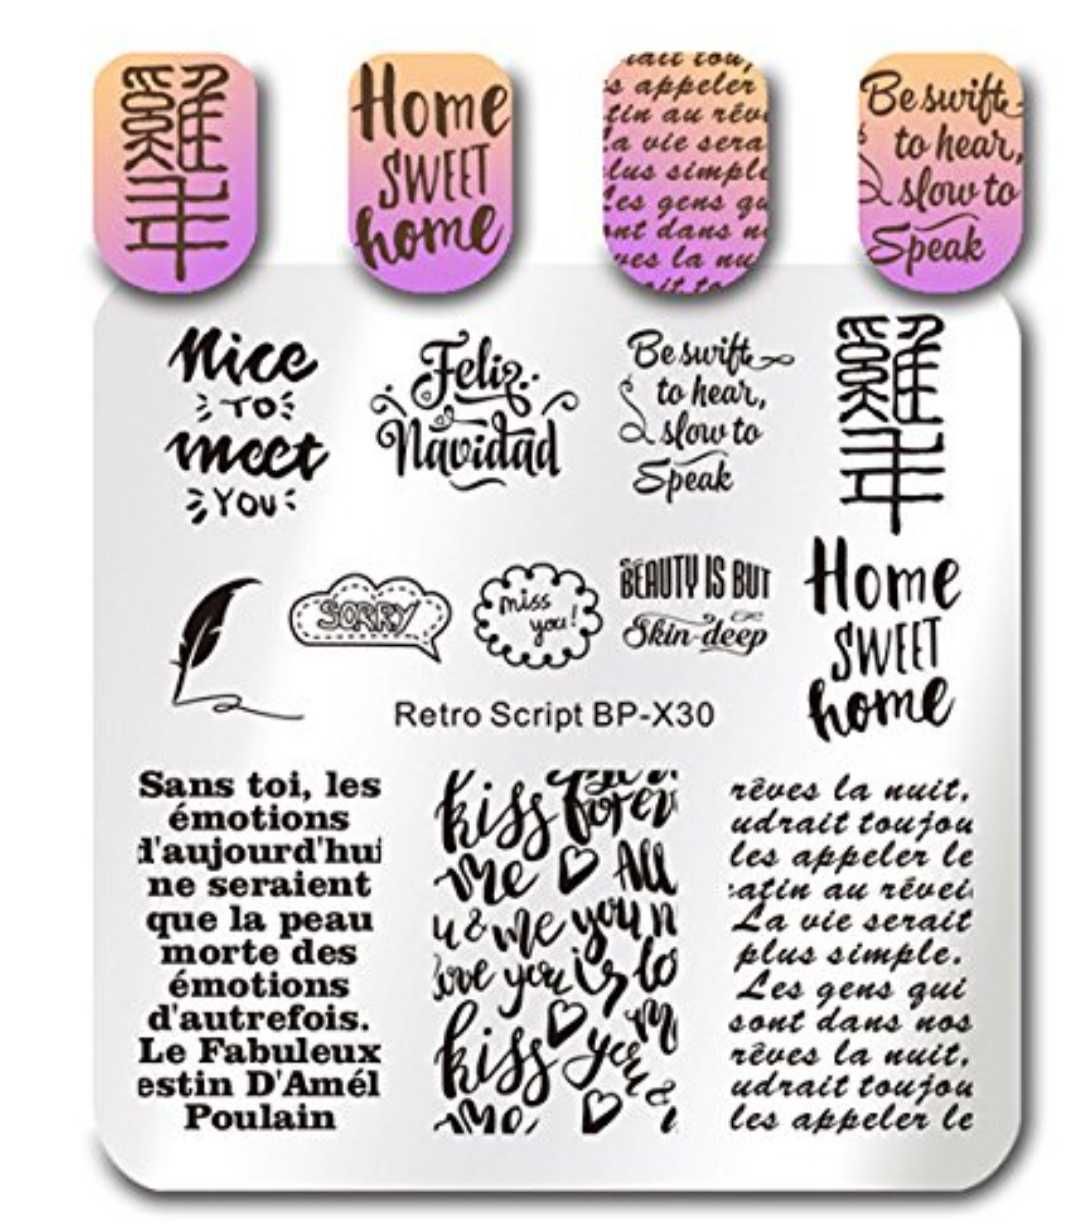 Home
SWEET
home
s appeler
tin au rêv
a vie sera
lus simple
Les gens qu
nt dans n
ves la nu
Be swift
to hear,
slow to
Speak
Nice
TO
meet
YOU
Feliz
Navidad
Be swift
to hear,
slow to
Speak
SORRY
miss
you!
BEAUTY IS BUT
Skin-deep
Home
SWEET
home
Retro Script BP-X30
Sans toi, les
émotions
d'aujourd'hui
ne seraient
que la peau
morte des
émotions
d'autrefois.
Le Fabuleux
estin D'Amél
Poulain
kiss forev
me All
u & me you n
love you is to
kiss you
me,
rêves la nuit.
udrait toujou
les appeler le
atin au révei
La vie serait
plus simple.
Les gens qui
sont dans nos
rêves la nuit.
udrait toujou
les appeler le